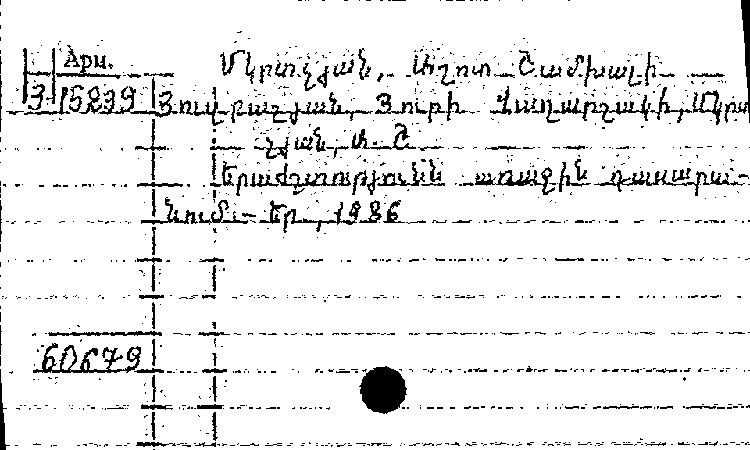 Арм.
Մկրտչյան, Աշոտ Շամիրի
3 15239 Յուզբաշյան, Յուրի Վաղարշակի, Մկրտ
չյան, Ա. Շ.
Երաժշտությունն առաջին դասարա-
նում.- Եր., 1986
60679